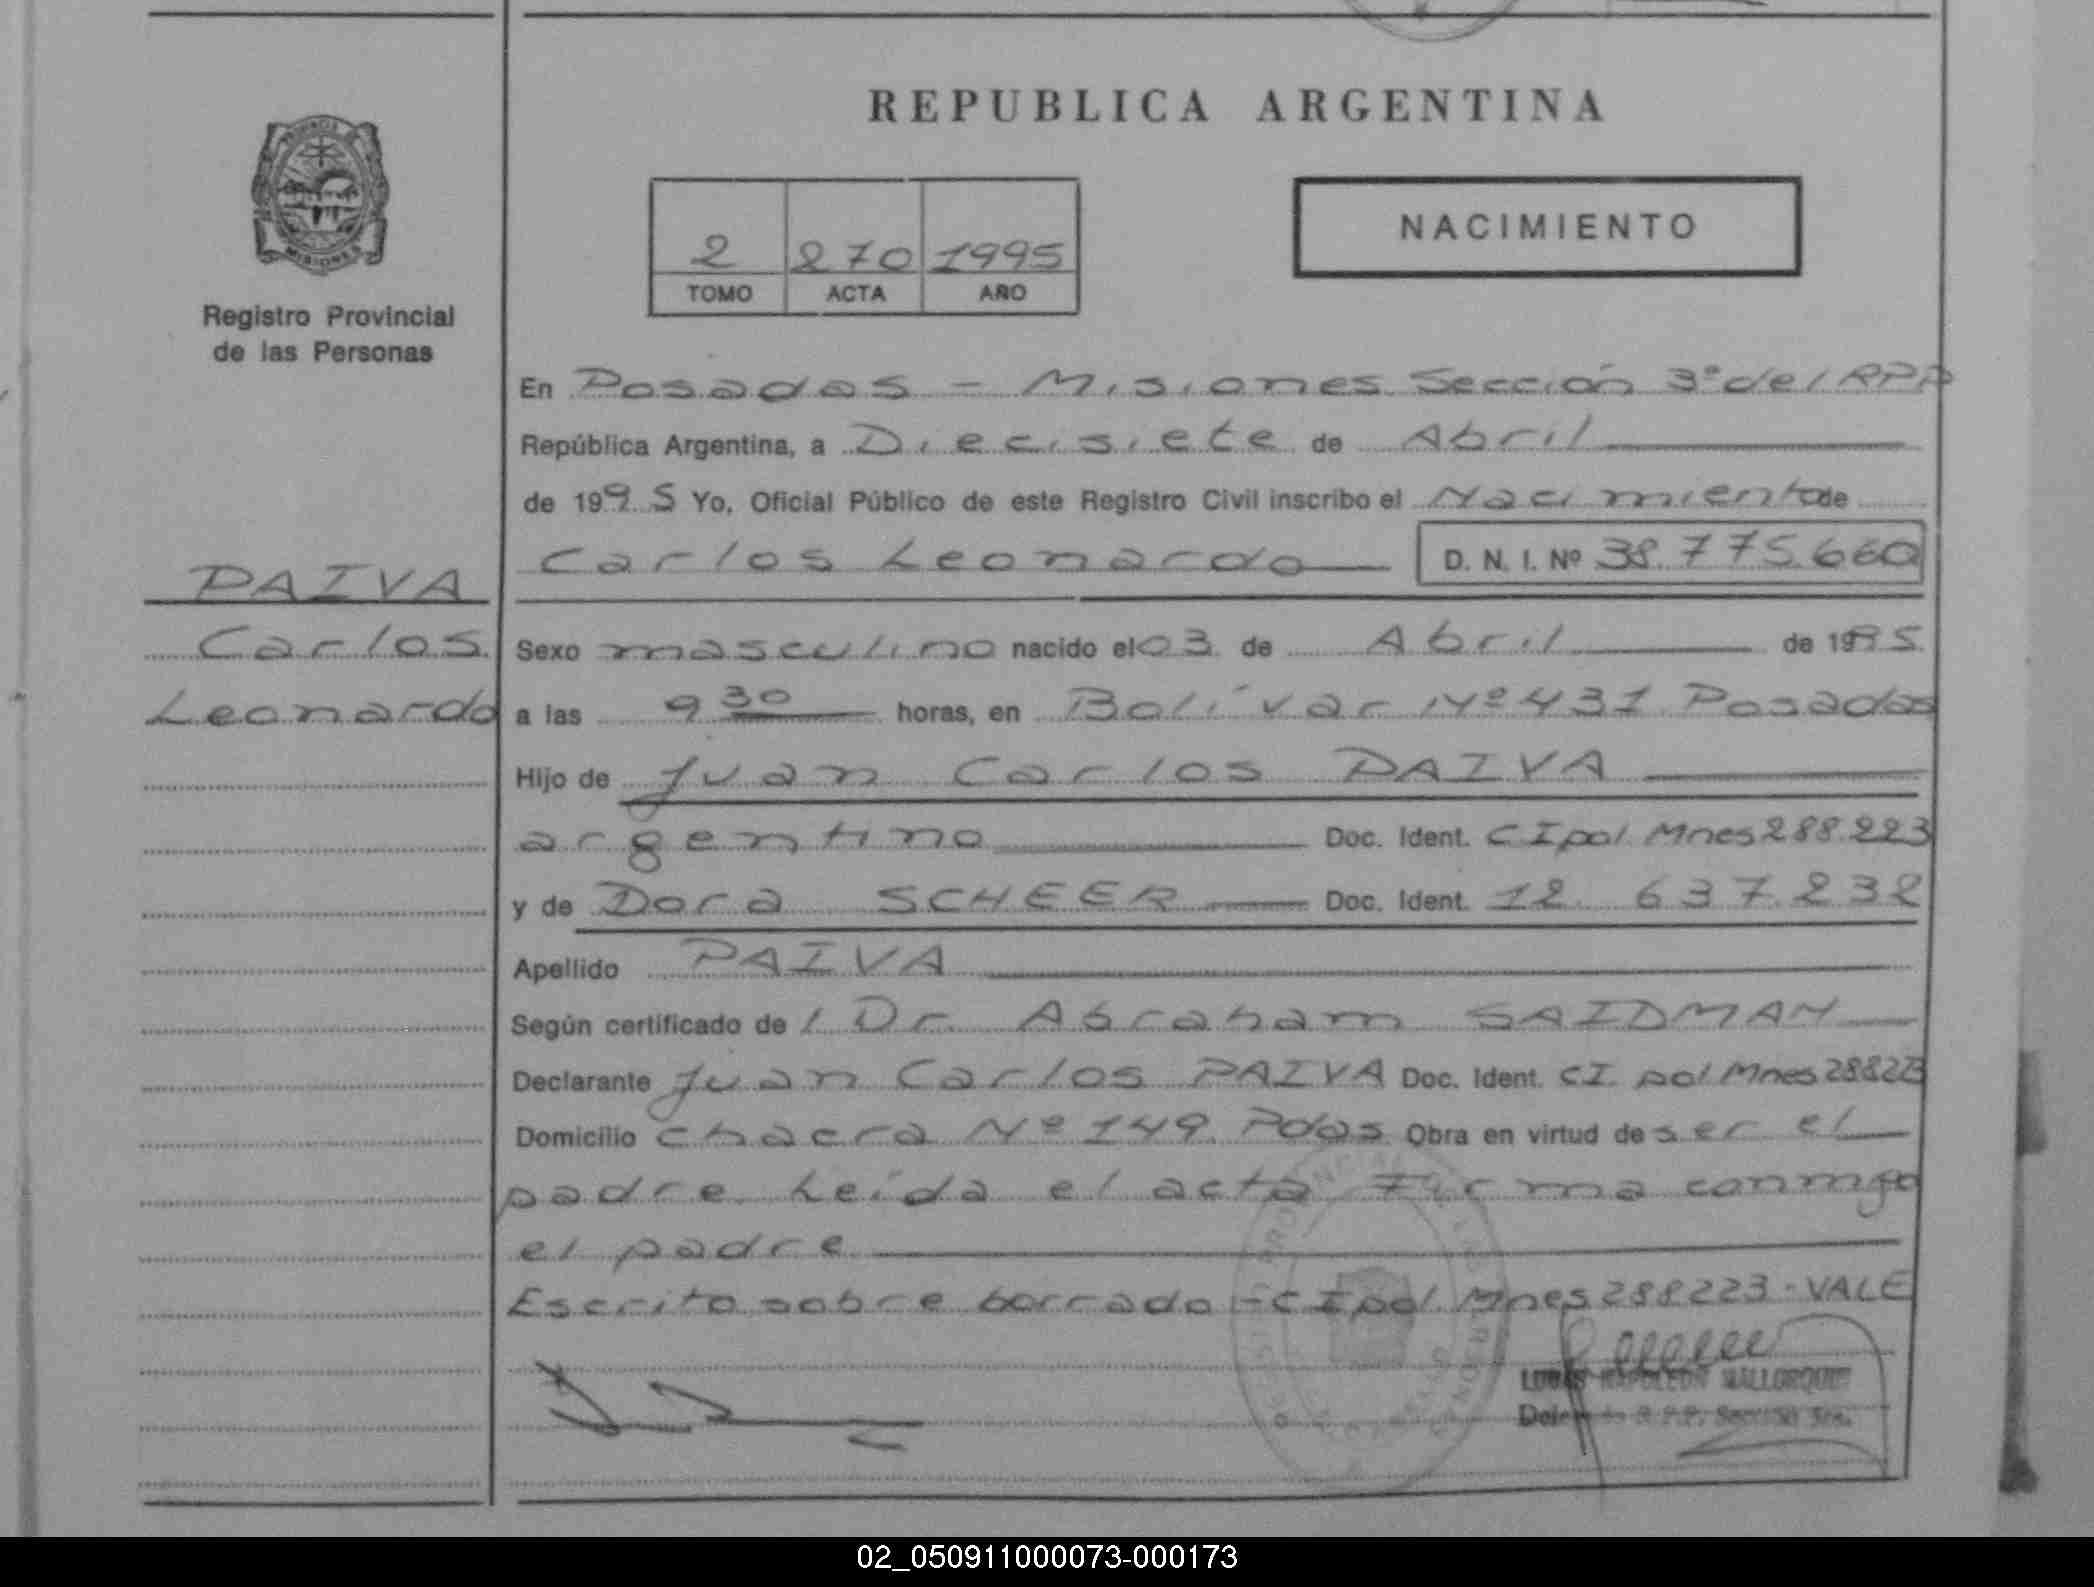 REPUBLICA ARGENTINA
PROVINCIA DE
MISIONES
Registro Provincial
de las Personas
2 270 1995
TOMO ACTA AÑO
NACIMIENTO
En Posadas - Misiones Sección 3º del RPP
República Argentina, a Diecisiete de Abril
de 1995 Yo, Oficial Público de este Registro Civil inscribo el Nacimiento de
Carlos Leonardo D. N. I. Nº 38.775.660
PAIVA
Carlos
Leonardo
Sexo masculino nacido el 03 de Abril de 1995
a las 9 30 horas, en Bolívar Nº 431 Posadas
Hijo de Juan Carlos PAIVA
argentino Doc. Ident. CIpol. Mnes 288.223
y de Dora SCHEER Doc. Ident. 12.637.232
Apellido PAIVA
Según certificado de l Dr. Abraham SAIDMAN
Declarante Juan Carlos PAIVA Doc. Ident. CI. pol Mnes 288223
Domicilio chacra Nº 149. Pdas Obra en virtud de ser el
padre. Leída el acta Firma conmigo
el padre
Escrito sobre borrado - CIpol. Mnes 288223 - VALE
NAPOLEON
R.P.P. Sección 3ra.
02_050911000073-000173